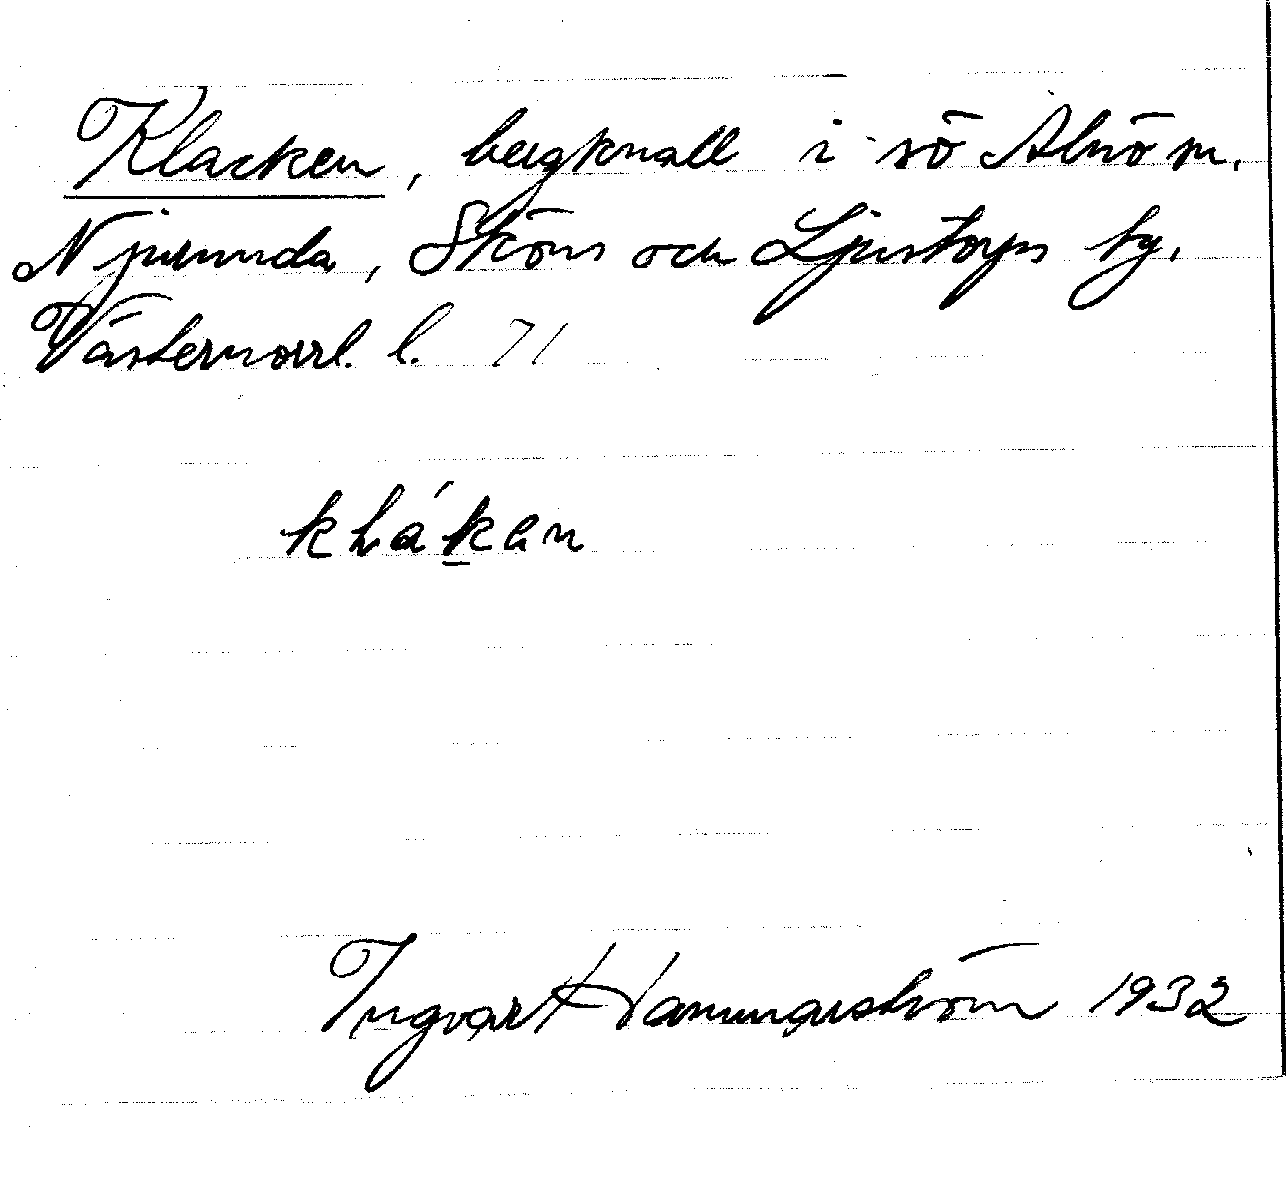 Klacken, bergknall i sö Alnö sn.
Njurunda, Sköns och Ljustorps tg.
Västernorrl. l. 71
kLákan
Ingvar Hammarström 1932